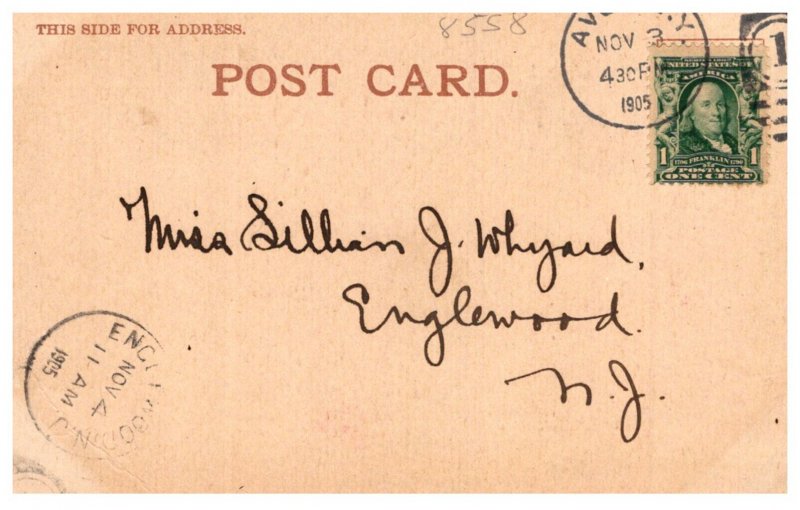 8558
THIS SIDE FOR ADDRESS.
POST CARD.
NOV 3
4 30 P
1905
1
UNITED STATES OF
AMERICA
1 1
1706 FRANKLIN 1790
POSTAGE
ONE CENT
Miss Lillian J. Whyard,
Englewood.
N. J.
NOV 4
11 AM
1905
N.J.